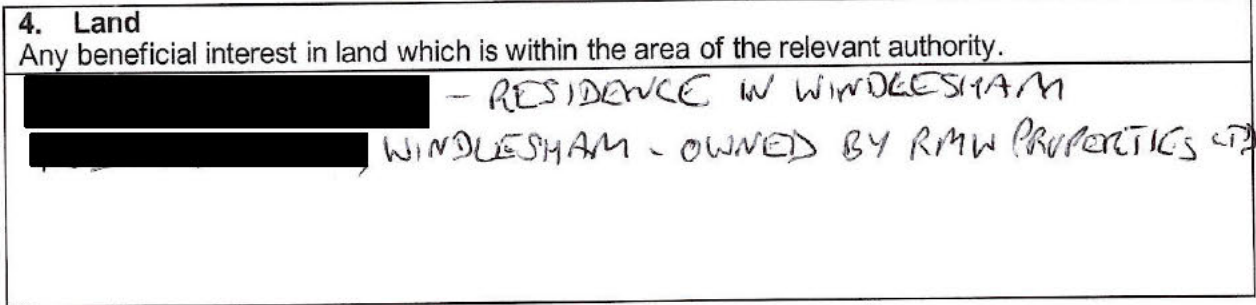 4. Land
Any beneficial interest in land which is within the area of the relevant authority.
- RESIDENCE IN WINDLESHAM
, WINDLESHAM - OWNED BY RMW PROPERTIES LTD